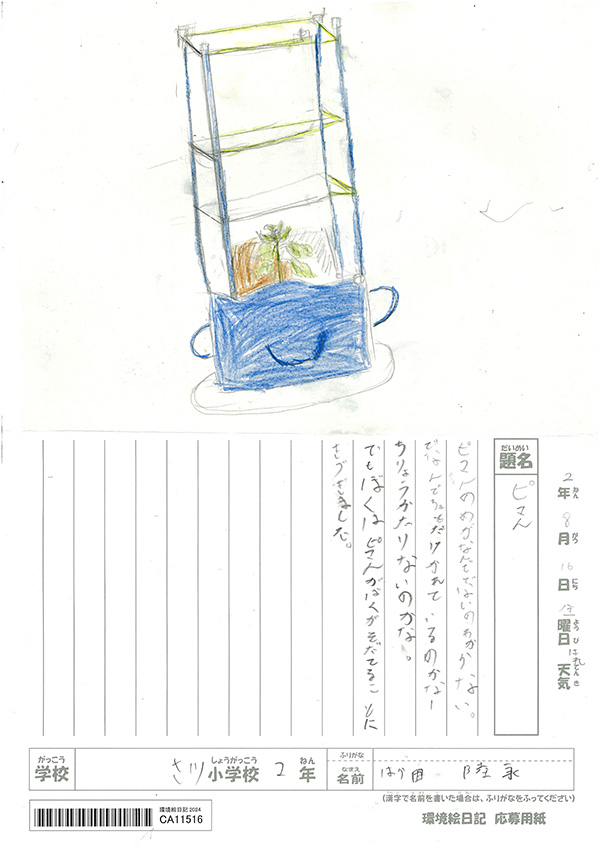 2年 8月 16日 金曜日 はれ 天気
ねん がつ にち ようび てんき
だいめい
題名
ピマん
ピマんのめがなんででないのかわからない。
だなんでちょもだけかれているのかなー
ちりょうかたりないのかな。
でもぼくはピまんがぼくがそだてることに
きづきました。
がっこう
学校
さい
しょうがっこう
小学校
2
ねん
年
ふりがな
なまえ
名前
田 陸
(漢字で名前を書いた場合は、ふりがなをふってください)
環境絵日記2024
CA11516
環境絵日記 応募用紙